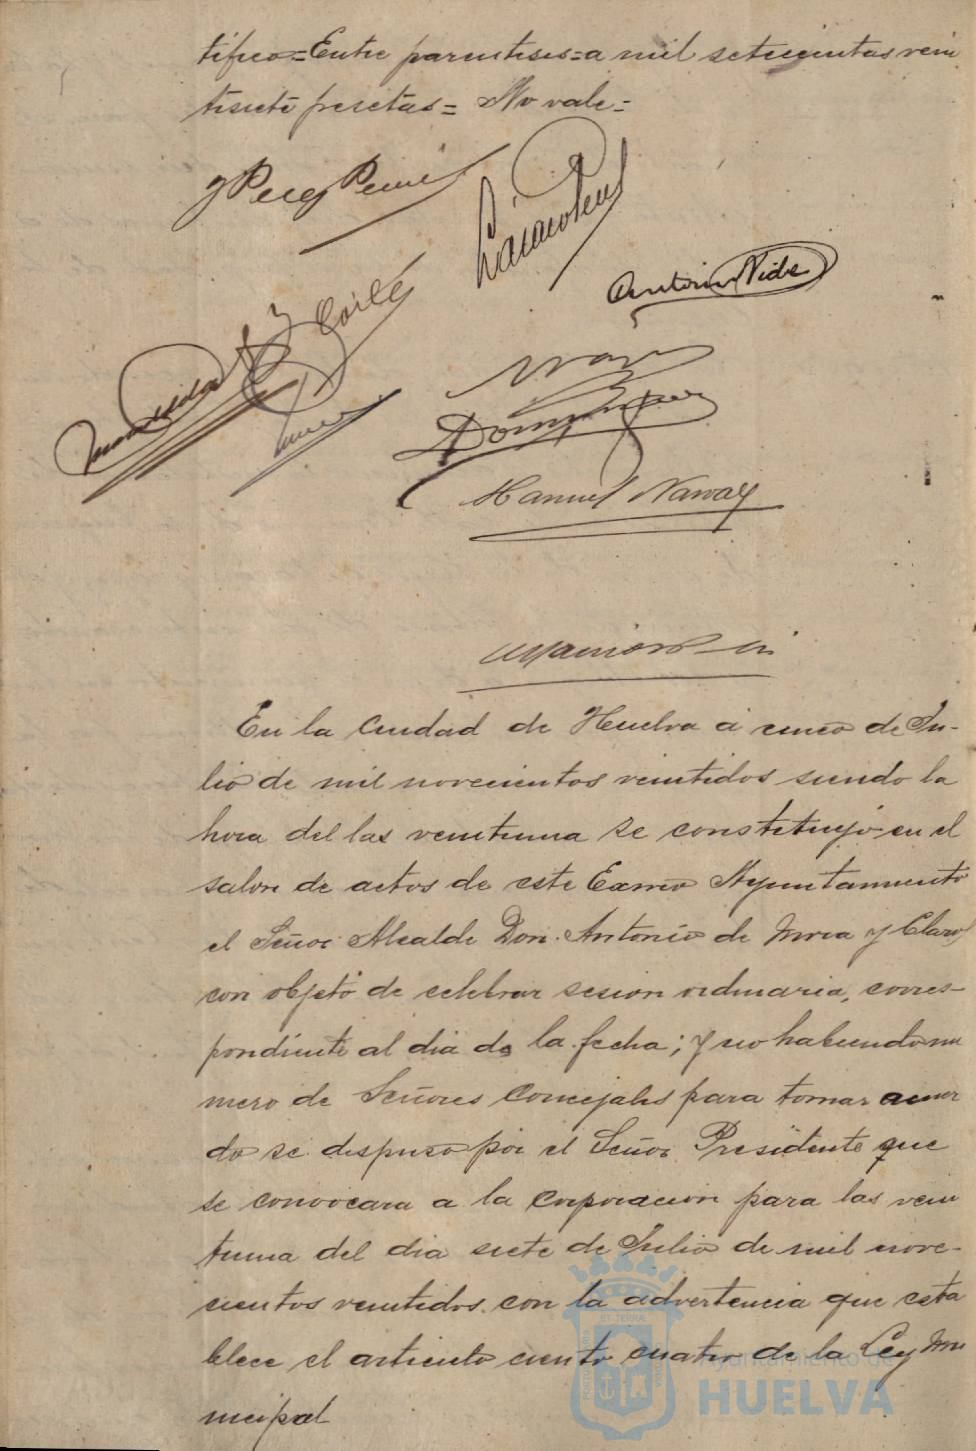 tifico=Entre parentesis=a mil setecientas vein
tisiete pesetas= No vale=
Antonio Vide
Manuel Narvaez
En la Ciudad de Huelva a cinco de Ju-
lio de mil novecientos veintidos siendo la
hora del las veintiuna se constituyó en el
salon de actos de este Excmo Ayuntamiento
el Señor Alcalde Don Antonio de Mora y Claro
con objeto de celebrar sesion ordinaria, corres-
pondiente al dia de la fecha; y no habiendo nu
mero de Señores Concejales para tomar acuer
do se dispuso por el Señor Presidente que
se convocara a la Corporacion para las vein
tiuna del dia siete de Julio de mil nove-
cientos veintidos con la advertencia que esta
blece el articulo ciento cuatro de la Ley Mu
nicipal
Ayuntamiento de
HUELVA